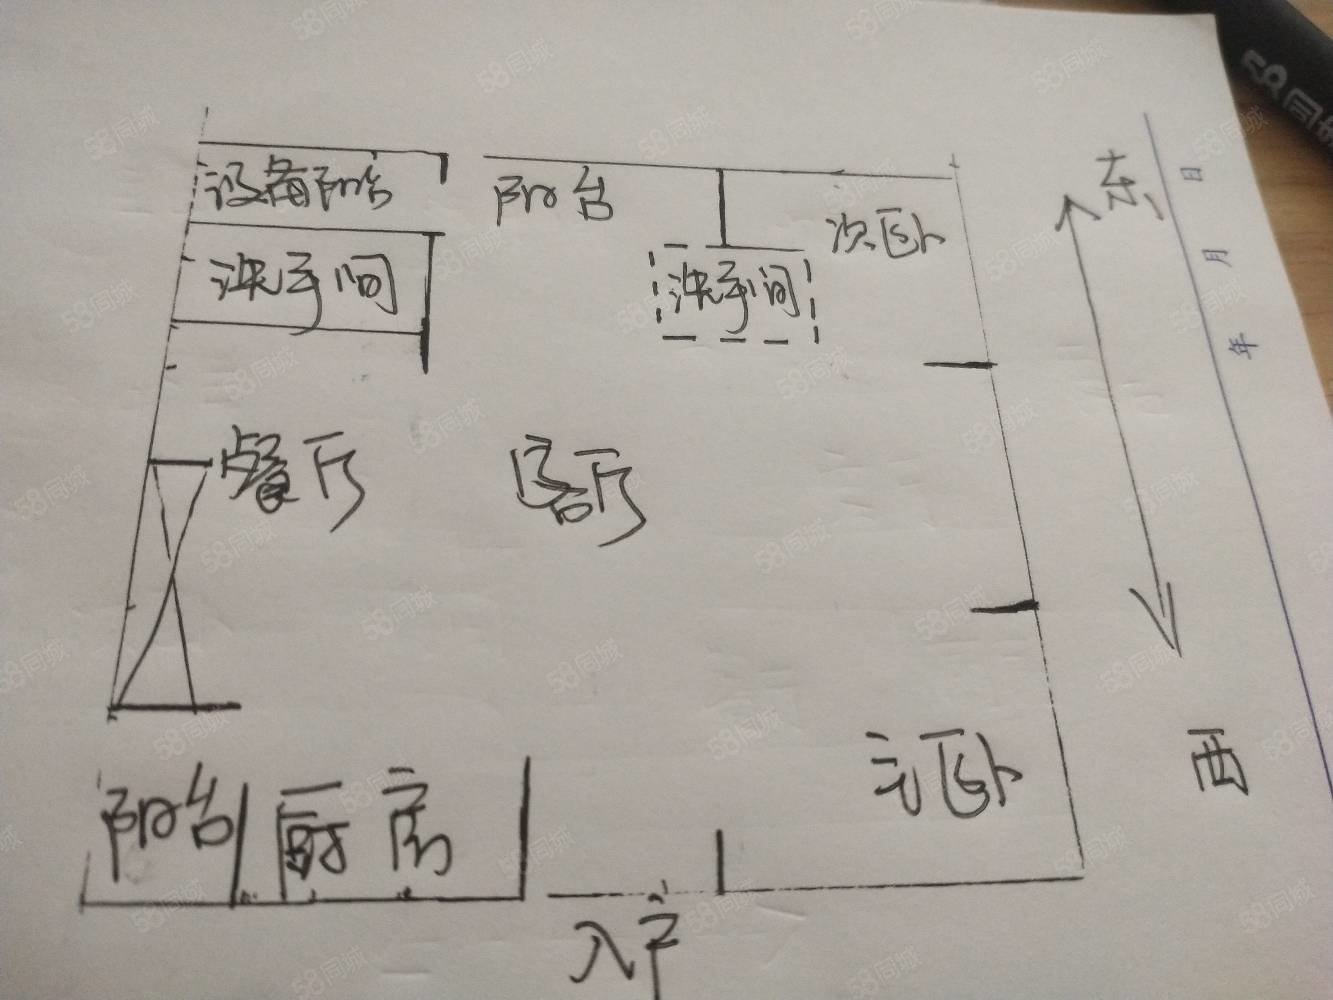 设备阳台
阳台
次卧
东
洗手间
洗手间
餐厅
客厅
主卧
西
阳台
厨房
入户
日
月
年
58同城